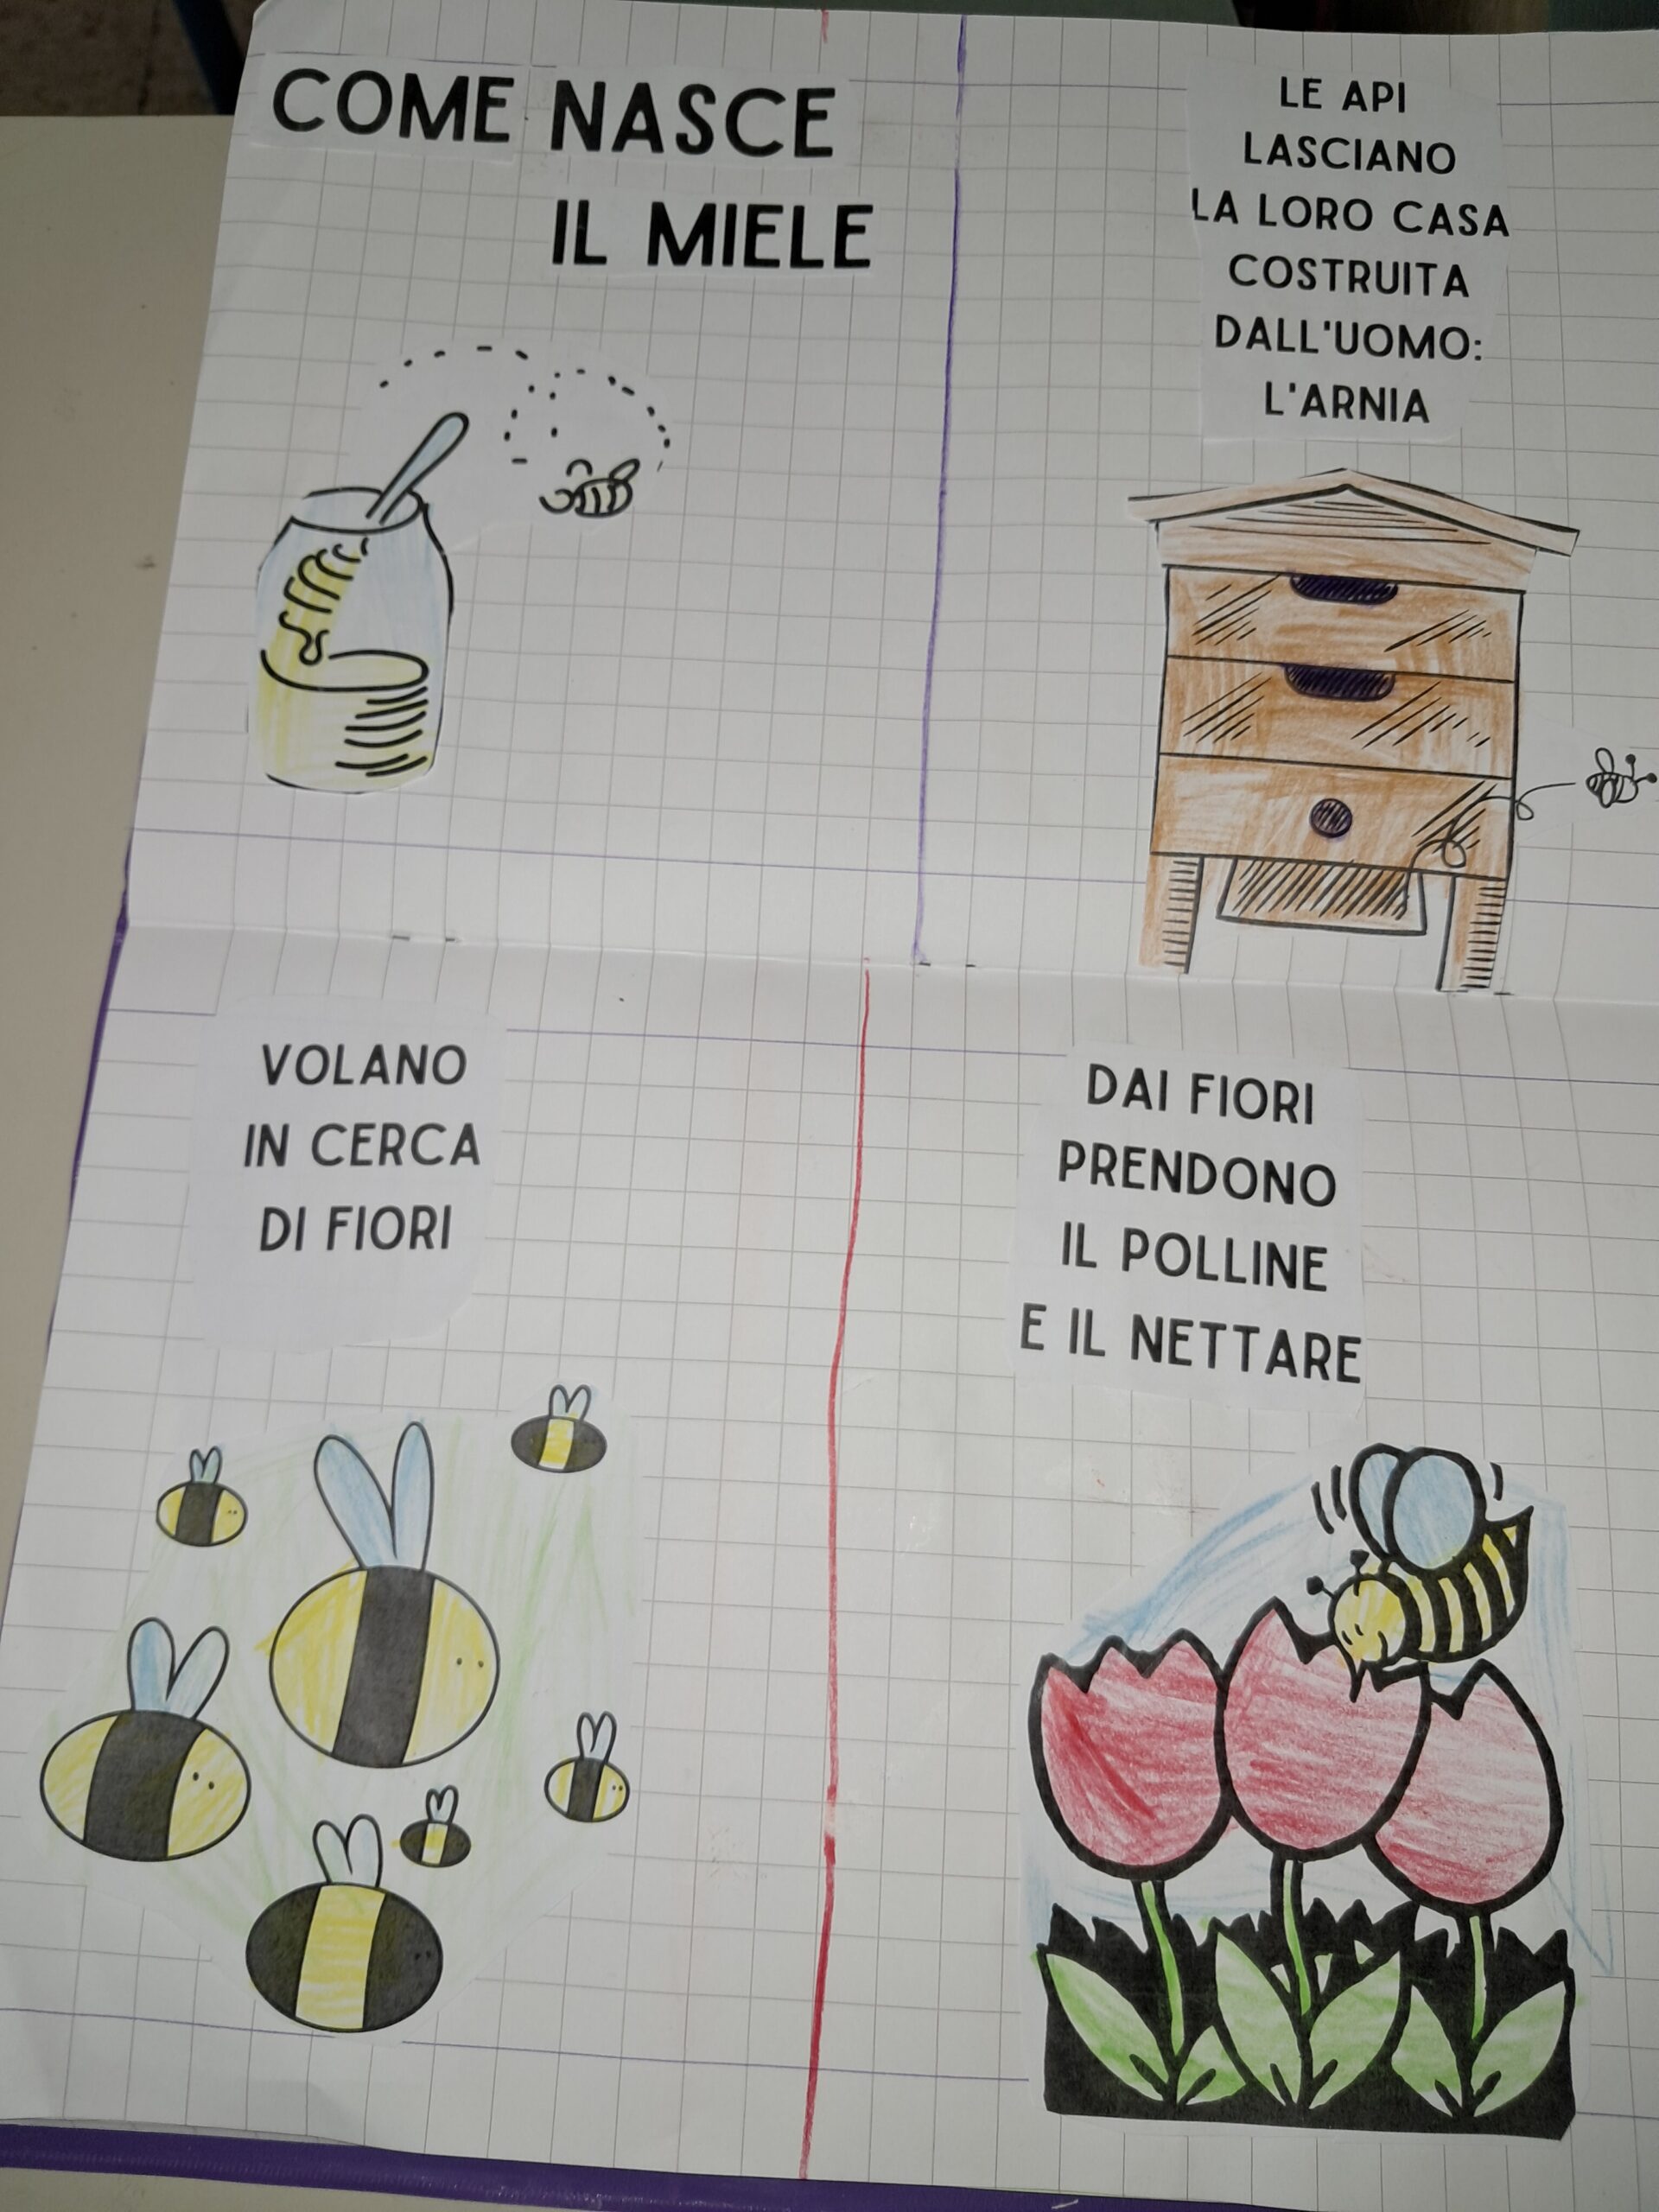 COME NASCE
IL MIELE
LE API
LASCIANO
LA LORO CASA
COSTRUITA
DALL'UOMO:
L'ARNIA
VOLANO
IN CERCA
DI FIORI
DAI FIORI
PRENDONO
IL POLLINE
E IL NETTARE